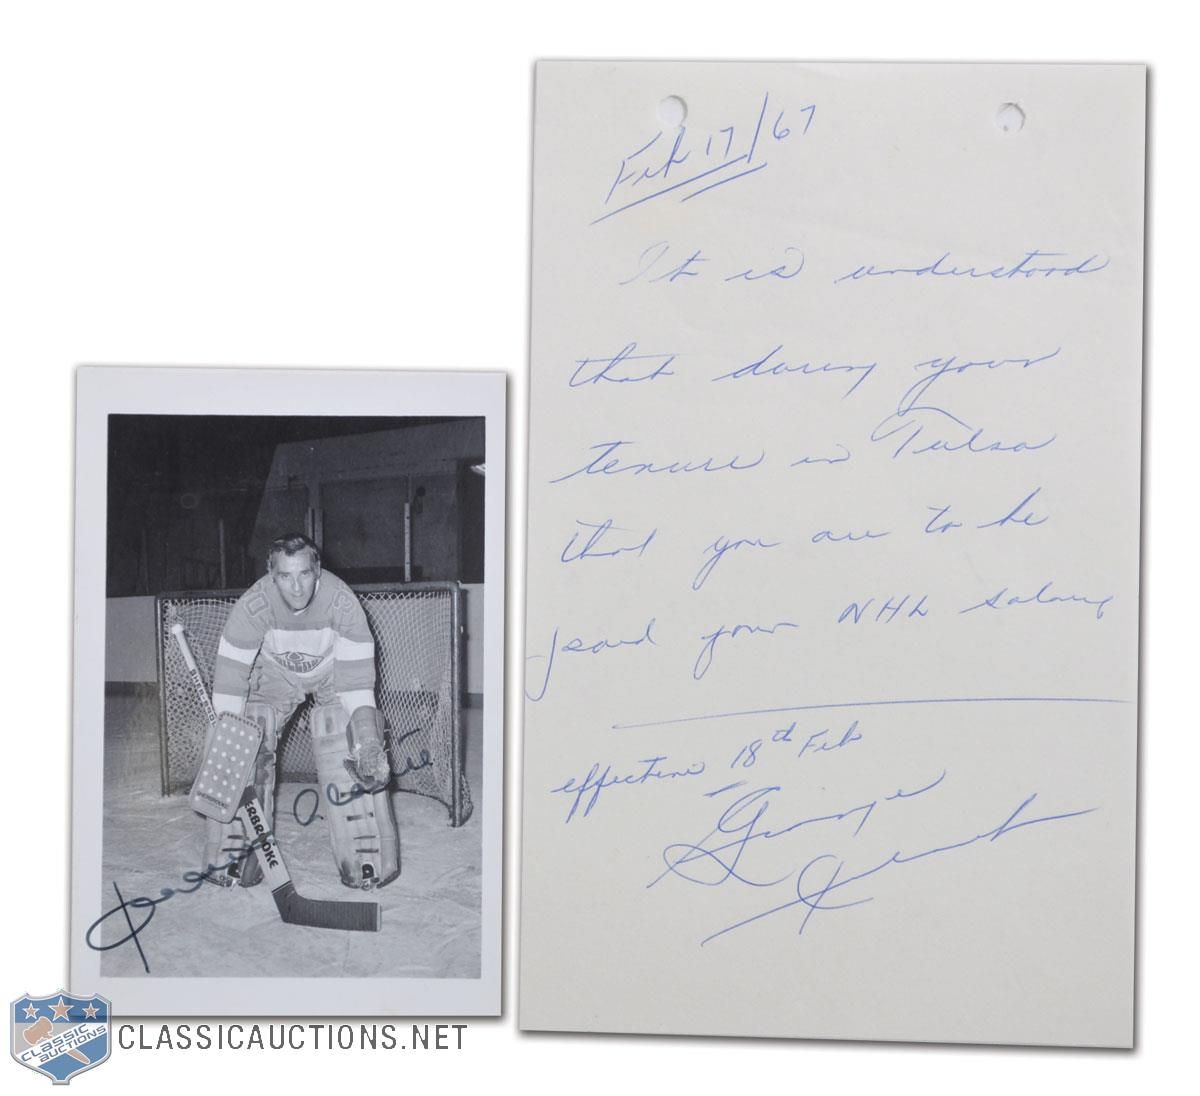 Feb 17/67
It is understood
that during your
tenure in Tulsa
that you are to be
paid your NHL salary
effective 18th Feb
George
Jacques Plante
SHERBROOKE
CLASSIC
AUCTIONS
CLASSICAUCTIONS.NET